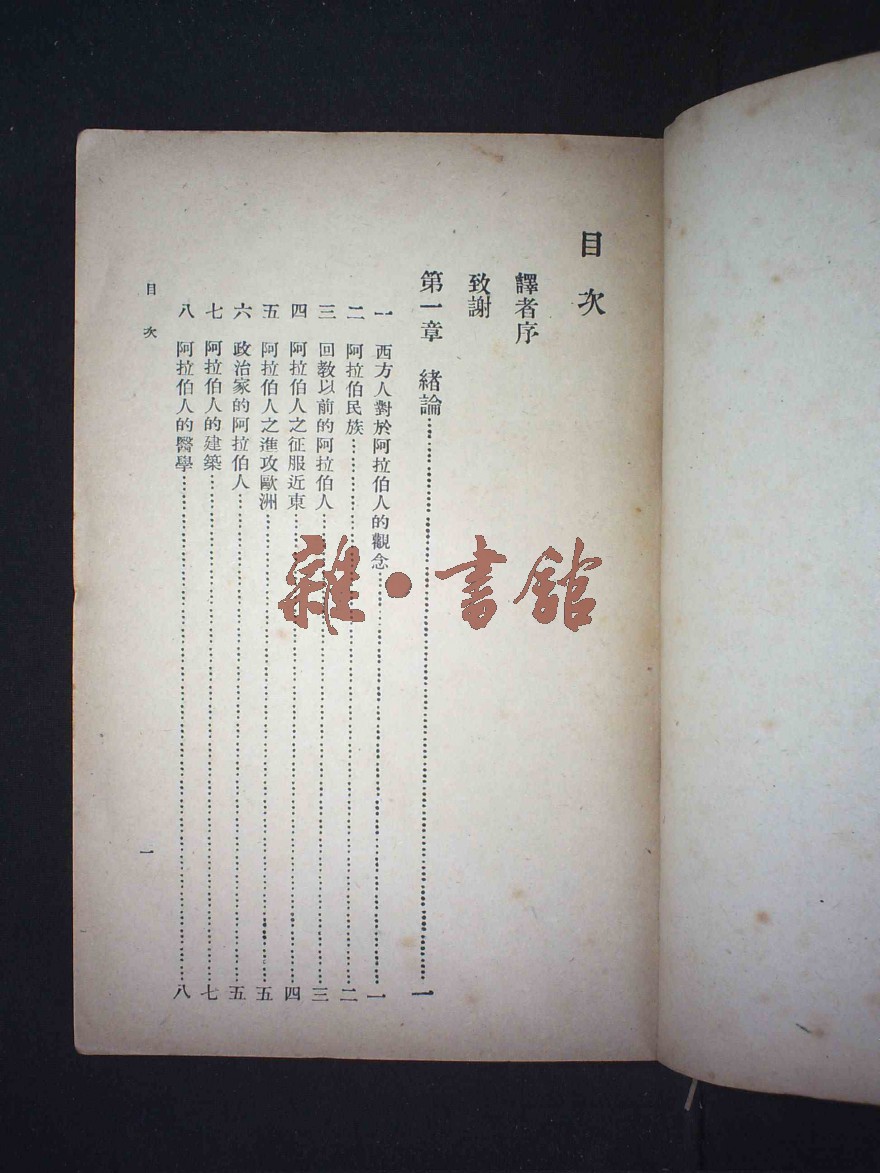 目次
譯者序
致謝
第一章 緒論……一
一 西方人對於阿拉伯人的觀念……一
二 阿拉伯民族……二
三 回教以前的阿拉伯人……三
四 阿拉伯人之征服近東……四
五 阿拉伯人之進攻歐洲……五
六 政治家的阿拉伯人……五
七 阿拉伯人的建築……七
八 阿拉伯人的醫學……八
目次
一
雜·書館